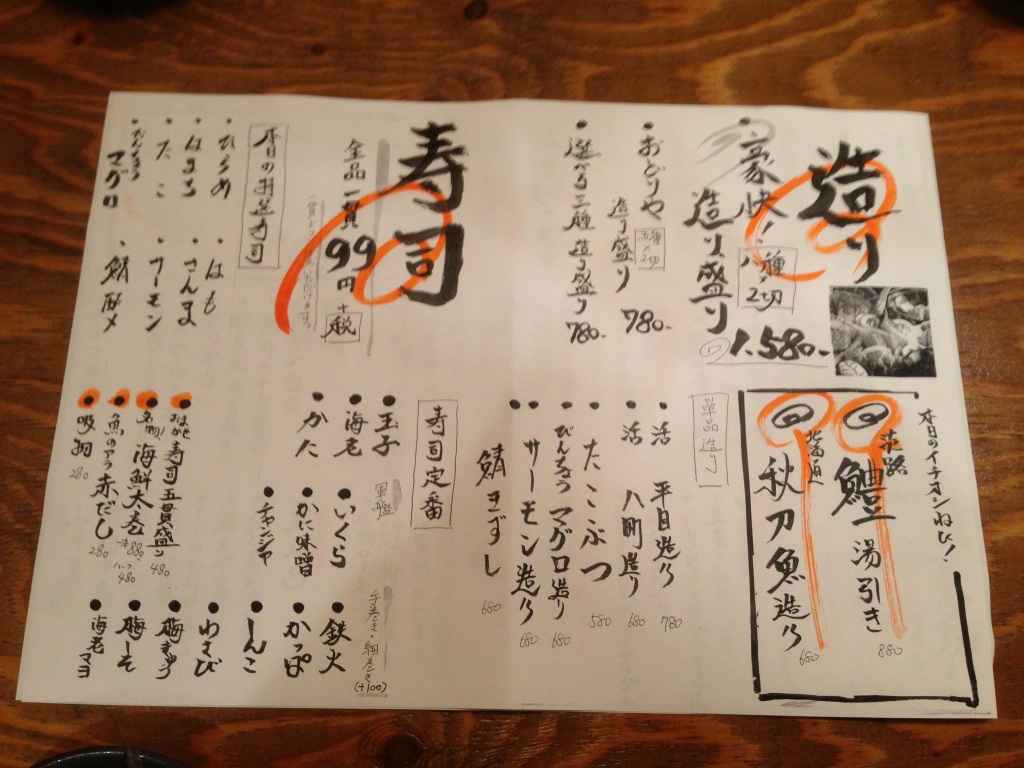 造り
豪快!
八種×2切
造り盛り
1.580-
おどりや
造り盛り
五種×2切
780-
選べる三種造り盛り 780-
本日のイチオシねた!
淡路
鱧湯引き 880
北海道
秋刀魚造り 680
単品造り
活 平目造り 780
活 八町造り 680
たこぶつ 580
びんちょうマグロ造り 680
サーモン造り 680
鯖きずし 680
寿司
全品一貫99円+税
本日のお造寿司
ひらめ
はまち
たこ
びんちょうマグロ
はも
さんま
サーモン
鯖〆
寿司定番
玉子
海老
かに
軍艦
いくら
かに味噌
チャンジャ
手巻き・細巻き(+100)
鉄火
かっぱ
しんこ
わさび
梅きゅう
梅しそ
海老マヨ
寿司五貫盛り 480
名物!海鮮太巻
一本880
ハーフ480
魚のアラ赤だし 280
吸物 280